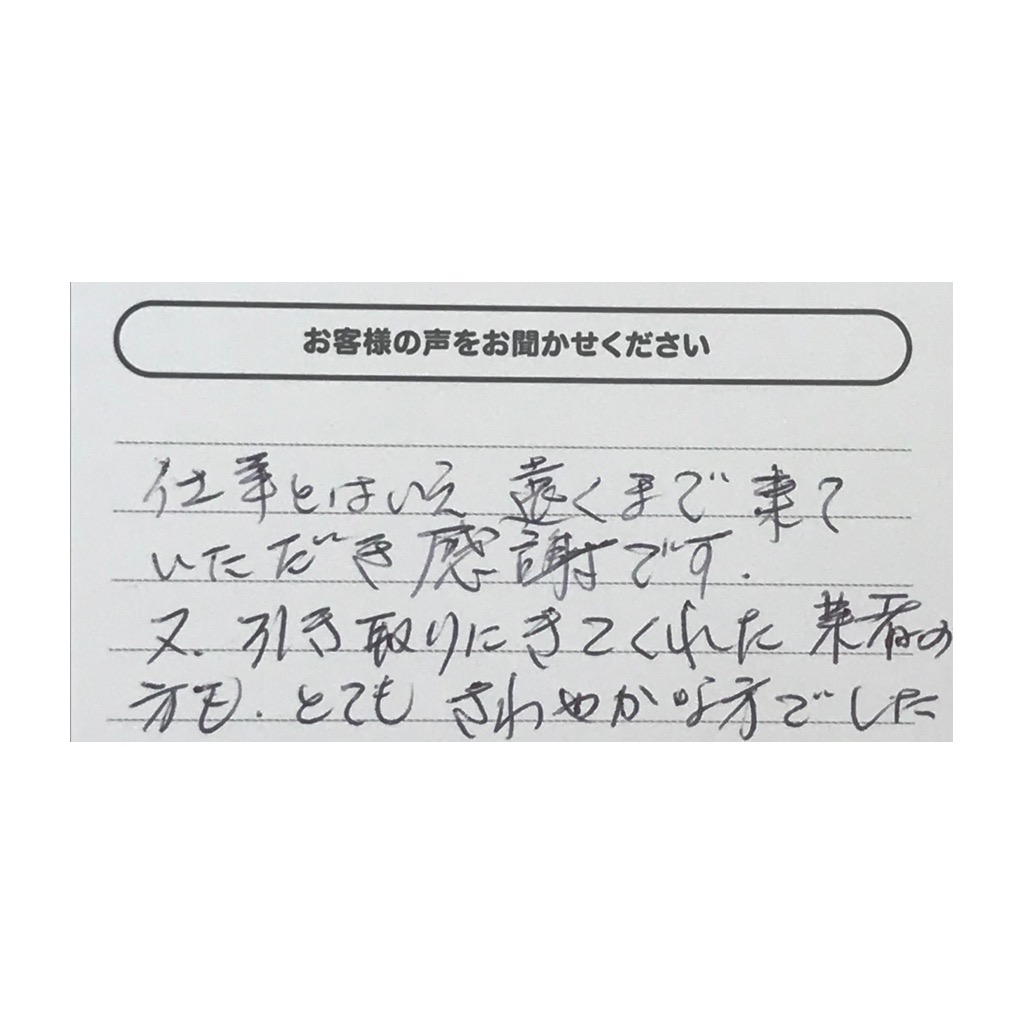 お客様の声をお聞かせください
仕事とはいえ 遠くまで来て
いただき感謝です.
又.引き取りにきてくれた 業者の
方も.とても さわやかな方でした